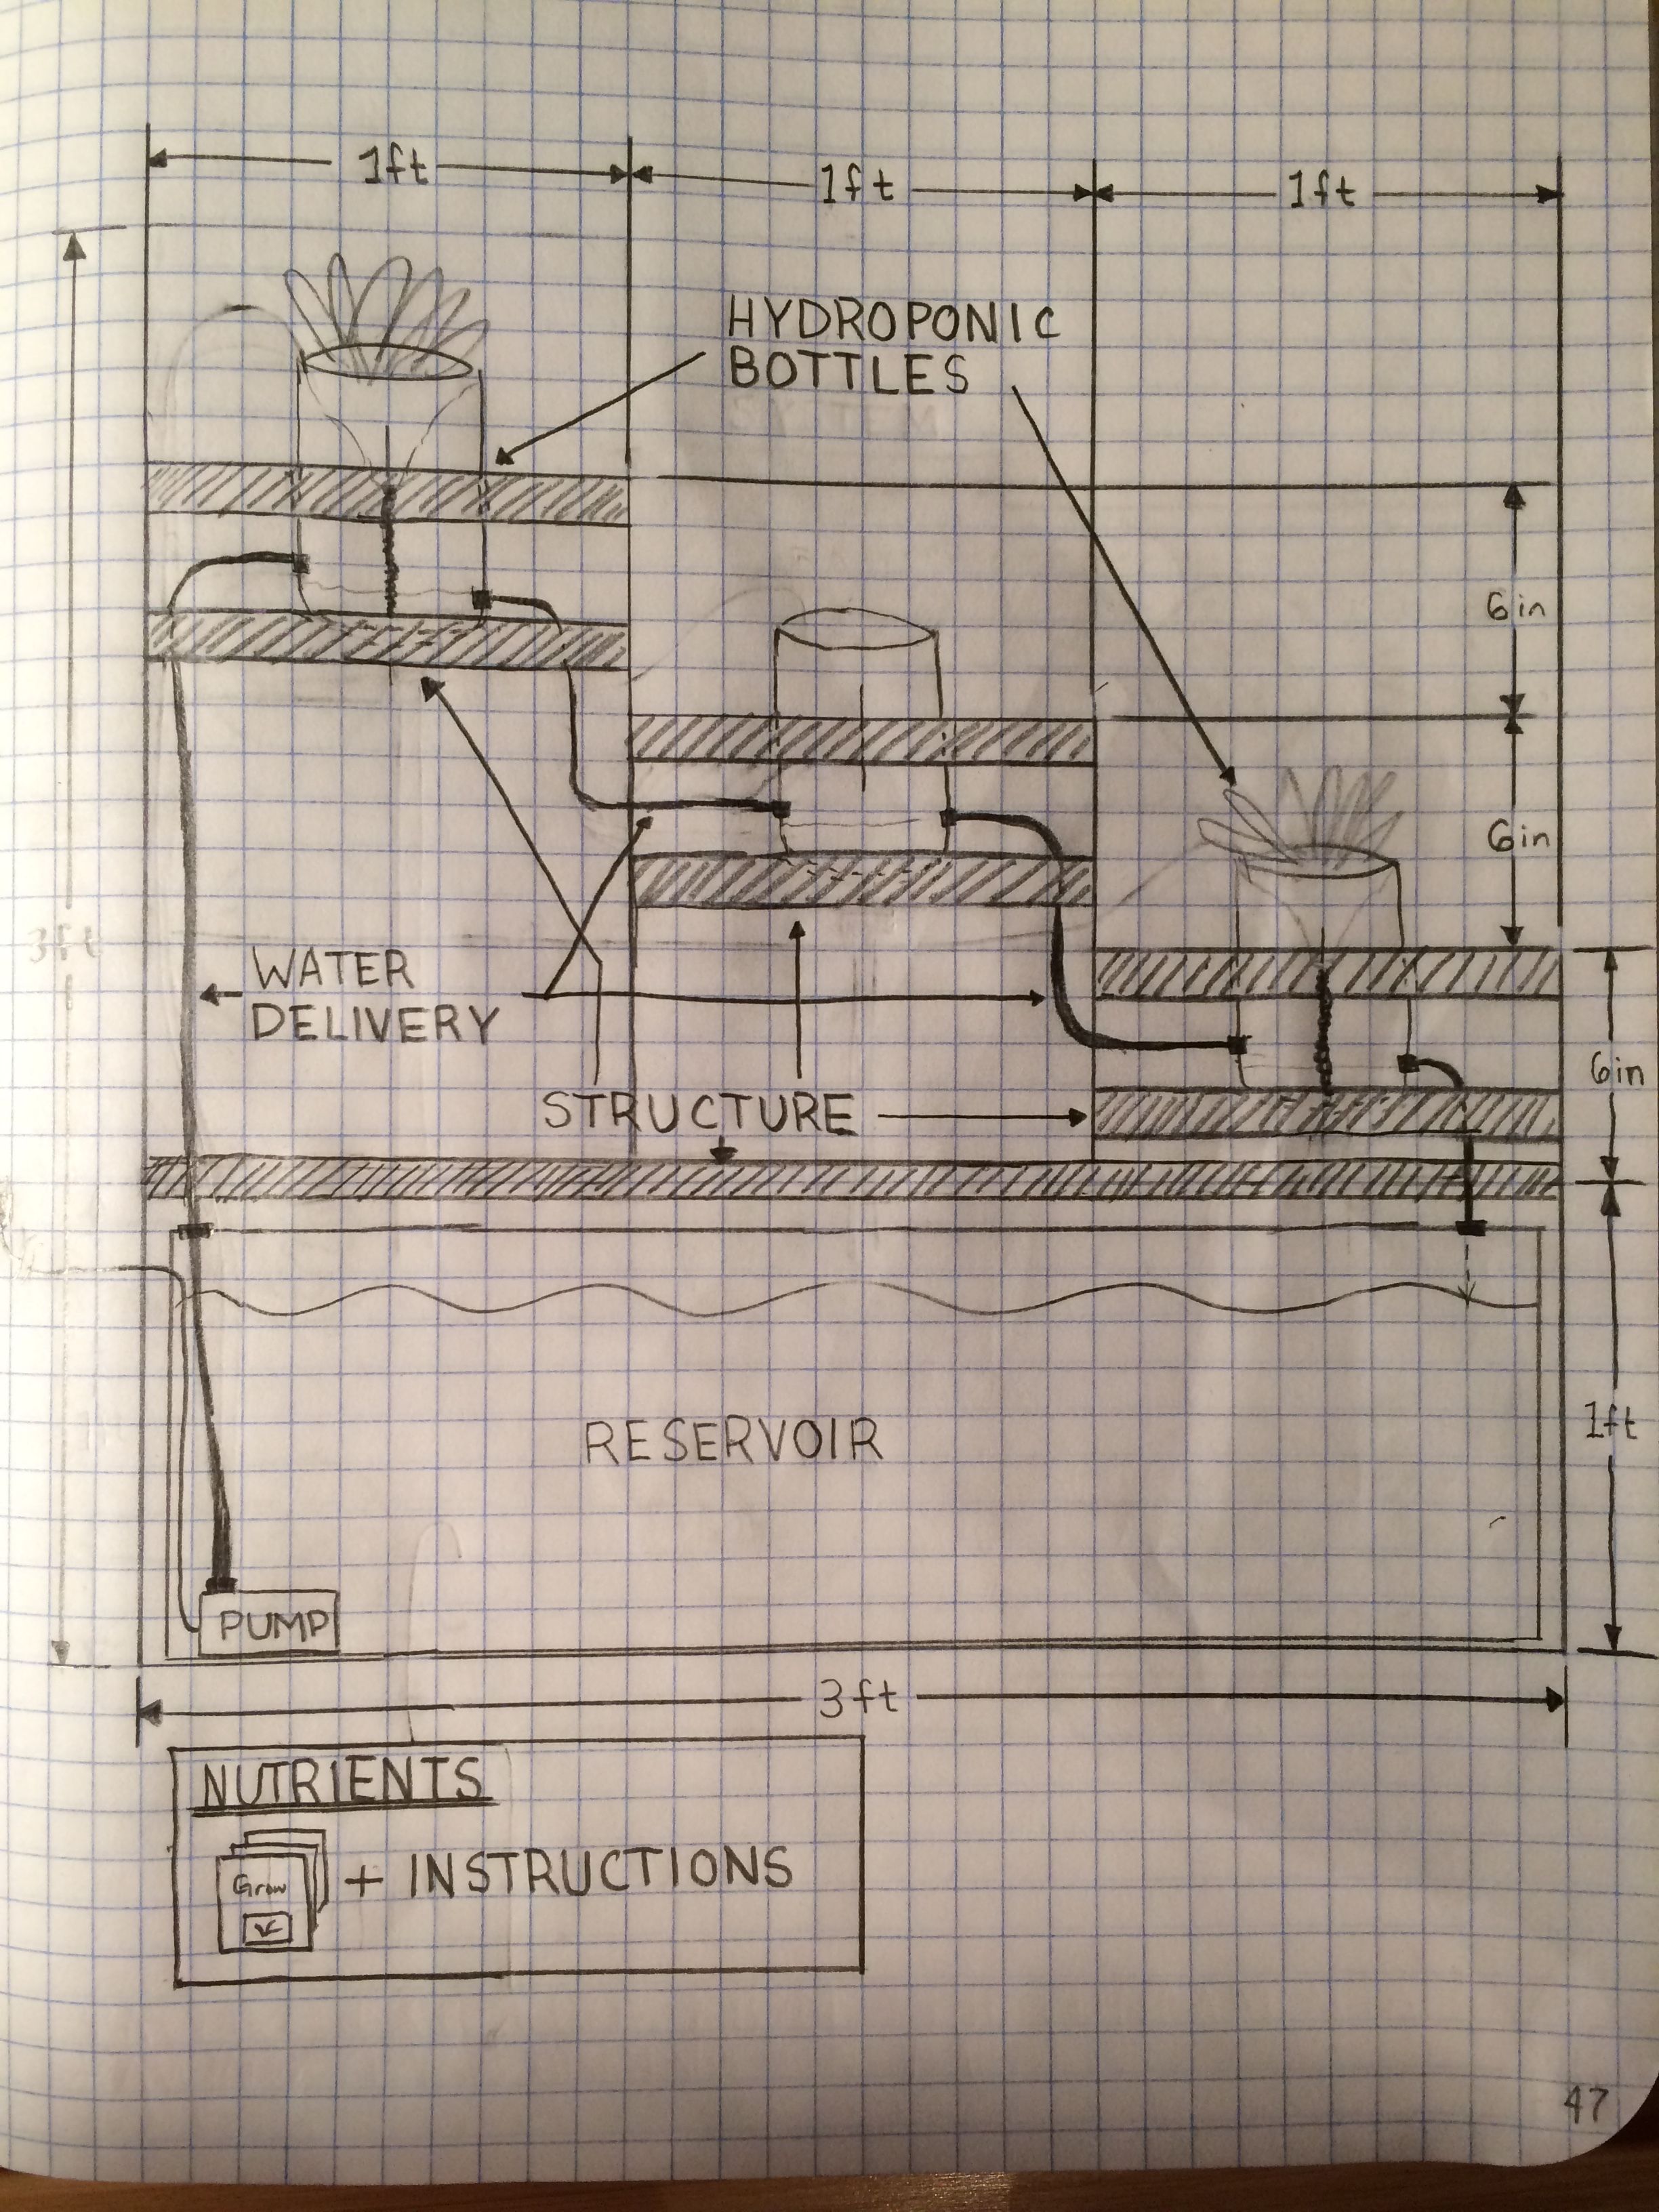 1ft
1ft
1ft
HYDROPONIC
BOTTLES
6in
6in
3ft
WATER
DELIVERY
6in
STRUCTURE
1ft
RESERVOIR
PUMP
3ft
NUTRIENTS
Grow
+ INSTRUCTIONS
47